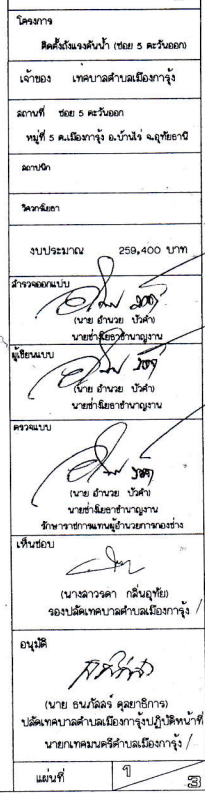 โครงการ
ติดตั้งถังแรงดันน้ำ (ซอย 5 ตะวันออก)
เจ้าของ เทศบาลตำบลเมืองการุ้ง
สถานที่ ซอย 5 ตะวันออก
หมู่ที่ 5 ต.เมืองการุ้ง อ.บ้านไร่ จ.อุทัยธานี
สถาปนิก
วิศวกรโยธา
งบประมาณ 259,400 บาท
สำรวจออกแบบ
(นาย อำนวย บัวคำ)
นายช่างโยธาชำนาญงาน
ผู้เขียนแบบ
(นาย อำนวย บัวคำ)
นายช่างโยธาชำนาญงาน
ตรวจแบบ
(นาย อำนวย บัวคำ)
นายช่างโยธาชำนาญงาน
รักษาราชการแทนผู้อำนวยการกองช่าง
เห็นชอบ
(นางลาวรดา กลิ่นอุทัย)
รองปลัดเทศบาลตำบลเมืองการุ้ง /
อนุมัติ
(นาย ธนภัลลร์ ดุลยาธิการ)
ปลัดเทศบาลตำบลเมืองการุ้งปฏิบัติหน้าที่
นายกเทศมนตรีตำบลเมืองการุ้ง /
แผ่นที่ 1 3